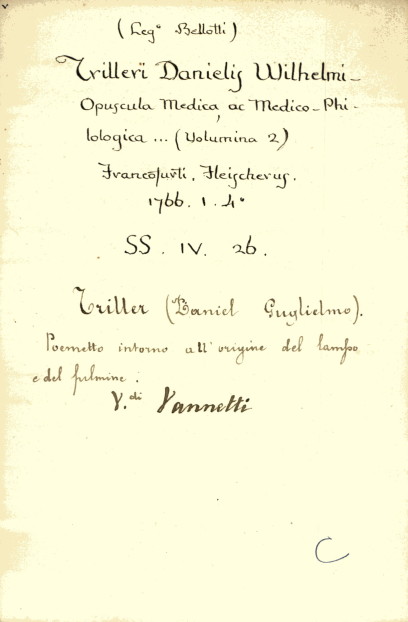 (Leg° Bellotti)
Trilleri Danielis Wilhelmi-
Opuscula Medica, ac Medico-Phi-
lologica ... (Volumina 2)
Francofurti, Fleischerus.
1766. 1. 4°
SS. IV. 26.
Triller (Daniel Guglielmo).
Poemetto intorno all'origine del lampo
e del fulmine.
V. di Vannetti
C